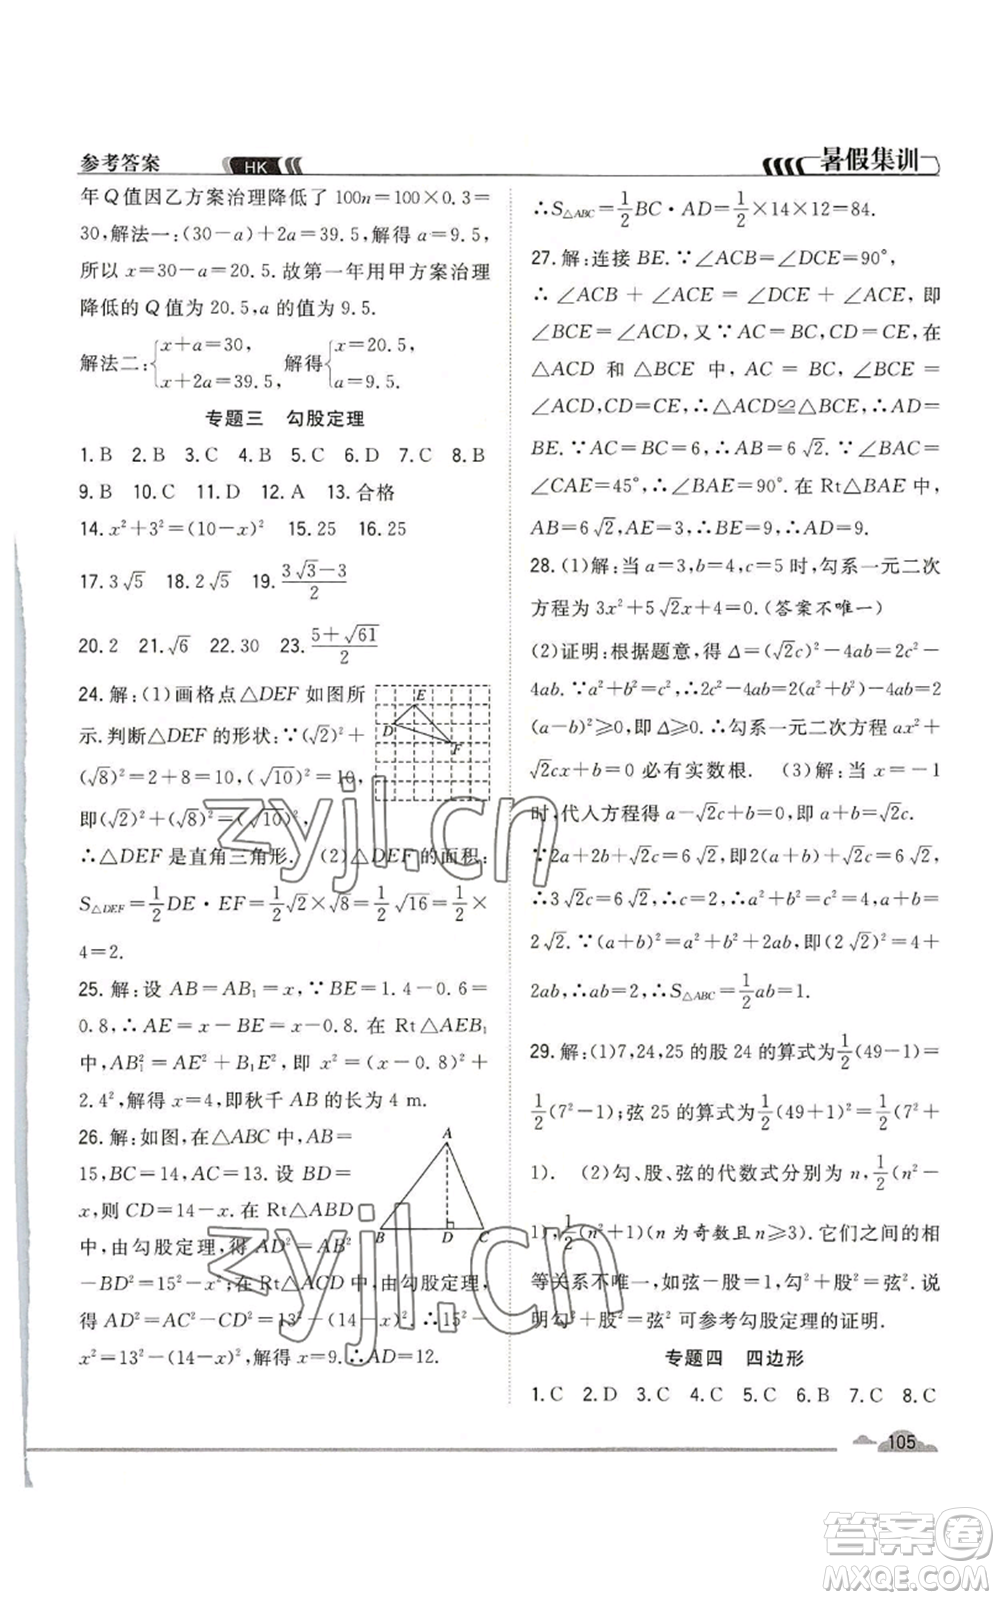 参考答案
HK
暑假集训
年 Q 值因乙方案治理降低了 100n=100×0.3=
30,解法一:(30-a)+2a=39.5,解得 a=9.5,
所以 x=30-a=20.5.故第一年用甲方案治理
降低的 Q 值为 20.5,a 的值为 9.5.
解法二:{x+a=30, x+2a=39.5, 解得{x=20.5, a=9.5.
专题三 勾股定理
1.B 2.B 3.C 4.B 5.C 6.D 7.C 8.B
9.B 10.C 11.D 12.A 13.合格
14.x²+3²=(10-x)² 15.25 16.25
17.3√5 18.2√5 19.(3√3-3)/2
20.2 21.√6 22.30 23.(5+√61)/2
24.解:(1)画格点△DEF 如图所
示.判断△DEF 的形状:∵(√2)²+
(√8)²=2+8=10,(√10)²=10,
即(√2)²+(√8)²=(√10)²,
∴△DEF 是直角三角形. (2)△DEF 的面积:
S△DEF=1/2 DE·EF=1/2√2×√8=1/2√16=1/2×
4=2.
E
D
F
25.解:设 AB=AB₁=x,∵BE=1.4-0.6=
0.8,∴AE=x-BE=x-0.8.在 Rt△AEB₁
中,AB₁²=AE²+B₁E²,即 x²=(x-0.8)²+
2.4²,解得 x=4,即秋千 AB 的长为 4 m.
26.解:如图,在△ABC 中,AB=
15,BC=14,AC=13.设 BD=
x,则 CD=14-x.在 Rt△ABD
中,由勾股定理,得 AD²=AB²
-BD²=15²-x²;在 Rt△ACD 中,由勾股定理,
得 AD²=AC²-CD²=13²-(14-x)²,∴15²-
x²=13²-(14-x)²,解得 x=9.∴AD=12.
A
B
D
C
∴S△ABC=1/2 BC·AD=1/2×14×12=84.
27.解:连接 BE.∵∠ACB=∠DCE=90°,
∴∠ACB+∠ACE=∠DCE+∠ACE,即
∠BCE=∠ACD,又∵AC=BC,CD=CE,在
△ACD 和△BCE 中,AC=BC,∠ACD=
∠BCE,CD=CE,∴△ACD≌△BCE,∴AD=
BE.∵AC=BC=6,∴AB=6√2.∵∠BAC=
∠CAE=45°,∴∠BAE=90°.在 Rt△BAE 中,
AB=6√2,AE=3,∴BE=9,∴AD=9.
28.(1)解:当 a=3,b=4,c=5 时,勾系一元二次
方程为 3x²+5√2x+4=0.(答案不唯一)
(2)证明:根据题意,得 Δ=(√2c)²-4ab=2c²-
4ab.∵a²+b²=c²,∴2c²-4ab=2(a²+b²)-4ab=2
(a-b)²≥0,即Δ≥0,∴勾系一元二次方程 ax²+
√2cx+b=0 必有实数根. (3)解:当 x=-1
时,代人方程得 a-√2c+b=0,即 a+b=√2c.
∵2a+2b+√2c=6√2,即2(a+b)+√2c=6√2,
∴3√2c=6√2,∴c=2,∴a²+b²=c²=4,a+b=
2√2.∵(a+b)²=a²+b²+2ab,即(2√2)²=4+
2ab,∴ab=2,∴S△ABC=1/2ab=1.
29.解:(1)7,24,25 的股 24 的算式为1/2(49-1)=
1/2(7²-1);弦 25 的算式为1/2(49+1)=1/2(7²+
1). (2)勾、股、弦的代数式分别为 n,1/2(n²-
1),1/2(n²+1)(n 为奇数且 n≥3).它们之间的相
等关系不唯一,如弦-股=1,勾²+股²=弦².说
明勾²+股²=弦²可参考勾股定理的证明.
专题四 四边形
1.C 2.D 3.C 4.C 5.C 6.B 7.C 8.C
105
zyjl.cn
zyjl.cn
答案卷
MXQE.COM